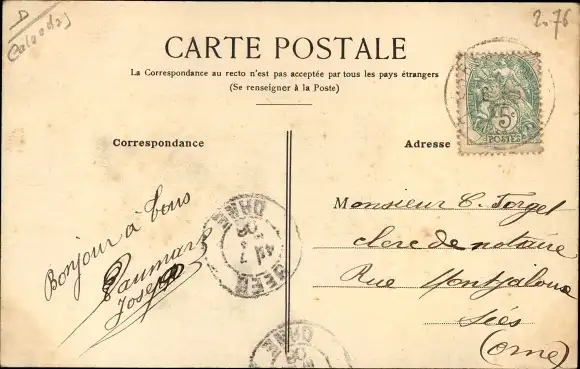 D
Calvados
2.76
CARTE POSTALE
La Correspondance au recto n'est pas acceptée par tous les pays étrangers
(Se renseigner à la Poste)
Correspondance
Adresse
5c
POSTES
Bonjour à tous
Paumard
Joseph
Monsieur C. Forget
clerc de notaire
Rue Montjaloux
Sées
(Orne)
ORNE
ORNE